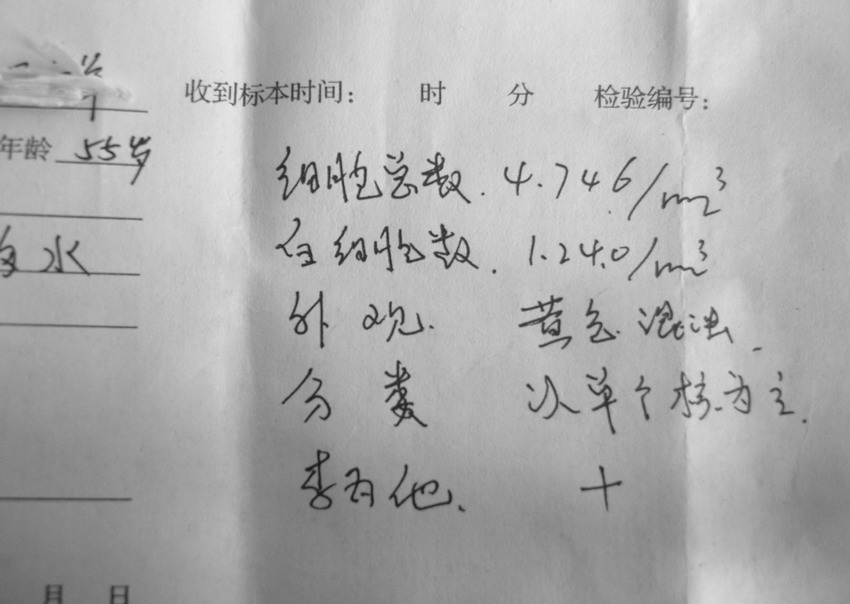 收到标本时间： 时 分 检验编号：
年龄 55岁
细胞总数. 4.746/mm³
白细胞数. 1.240/mm³
水
外观. 黄色.混浊.
分类 以单个核为主.
李为他. +
月 日